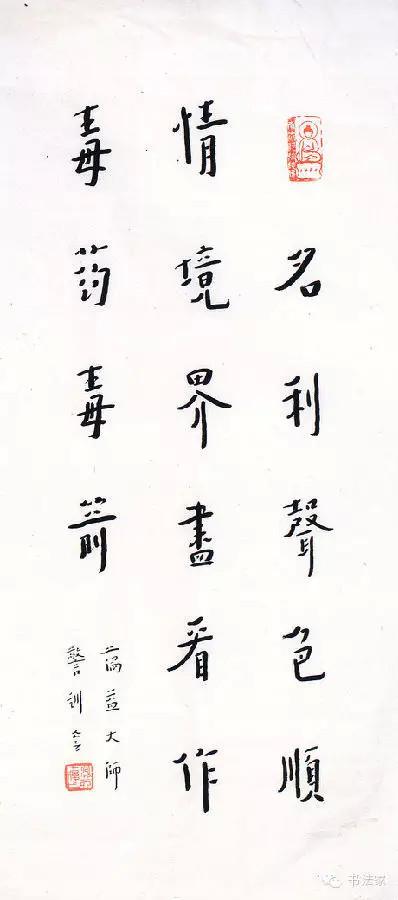 名利聲色順
情境界盡看作
毒葯毒箭
蕅益大師
警訓
书法家